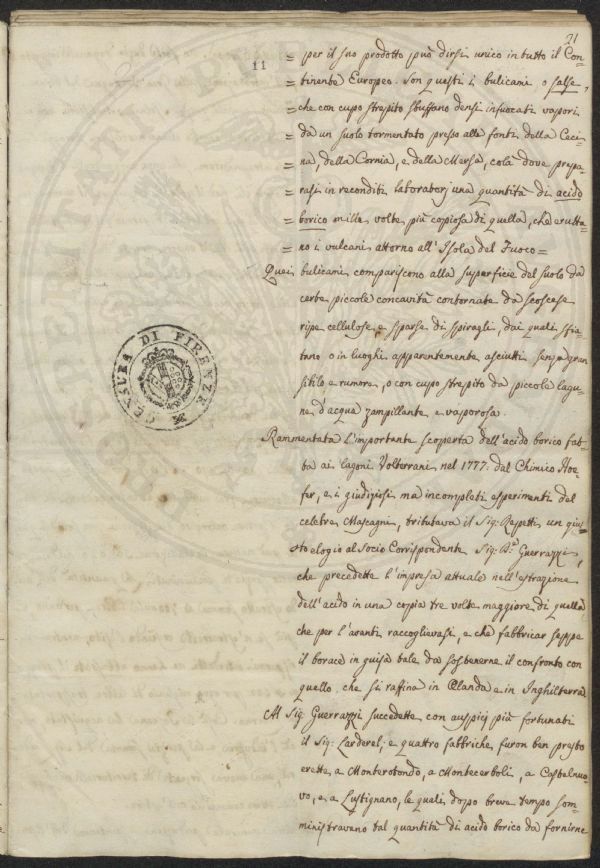 21
11
= per il suo prodotto può dirsi unico in tutto il Con-
= tinente Europeo. Son questi i bulicami o salse,
= che con cupo strepito sbuffano densi infuocati vapori
= da un suolo tormentato presso alle fonti della Ceci-
= na, della Cornia, e della Mersa, colà dove prepa-
= rasi in reconditi laboratorj una quantità di acido
= borico mille volte più copiosa di quella, che erutta-
= no i vulcani attorno all'Isola del Fuoco =
Quei bulicami compariscono alla superficie del suolo da
certe piccole concavità contornate da scoscese
ripe cellulose, e sparse di spiragli, dai quali sfia-
tano o in luoghi apparentemente asciutti senza gran
sibilo e rumore, o con cupo strepito da piccole lagu-
ne d'acqua zampillante e vaporosa.
Rammentata l'importante scoperta dell'acido borico fat-
ta ai lagoni Volterrani nel 1777: dal Chimico Hoe-
fer, e i giudiziosi ma incompleti esperimenti del
celebre Mascagni, tributava il Sig: Repetti un giu-
sto elogio al Socio Corrispondente Sig: Guerrazzi,
che precedette l'impresa attuale nell'estrazione
dell'acido in una copia tre volte maggiore di quella
che per l'avanti raccoglievasi, e che fabbricar seppe
il borace in guisa tale da sostenerne il confronto con
quello, che si raffina in Olanda e in Inghilterra
Al Sig: Guerrazzi succedette con auspicj più fortunati
il Sig: Larderel, e quattro fabbriche furon ben presto
erette a Monterotondo, a Montecerboli, a Castelnuo-
vo, e a Lustignano, le quali dopo breve tempo som-
ministravano tal quantità di acido borico da fornirne
CENSURA DI FIRENZE